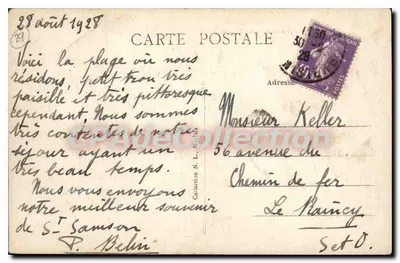 28 août 1928
CARTE POSTALE
Voici la plage où nous
résidons, petit trou très
paisible et très pittoresque
cependant, Nous sommes
très contentes de notre
séjour ayant un
très beau temps.
Nous vous envoyons
notre meilleur souvenir
de St Samson
P. Belin
Adresse
Monsieur Keller
56 avenue du
Chemin de fer
Le Raincy
S et O.
Collection N. L.